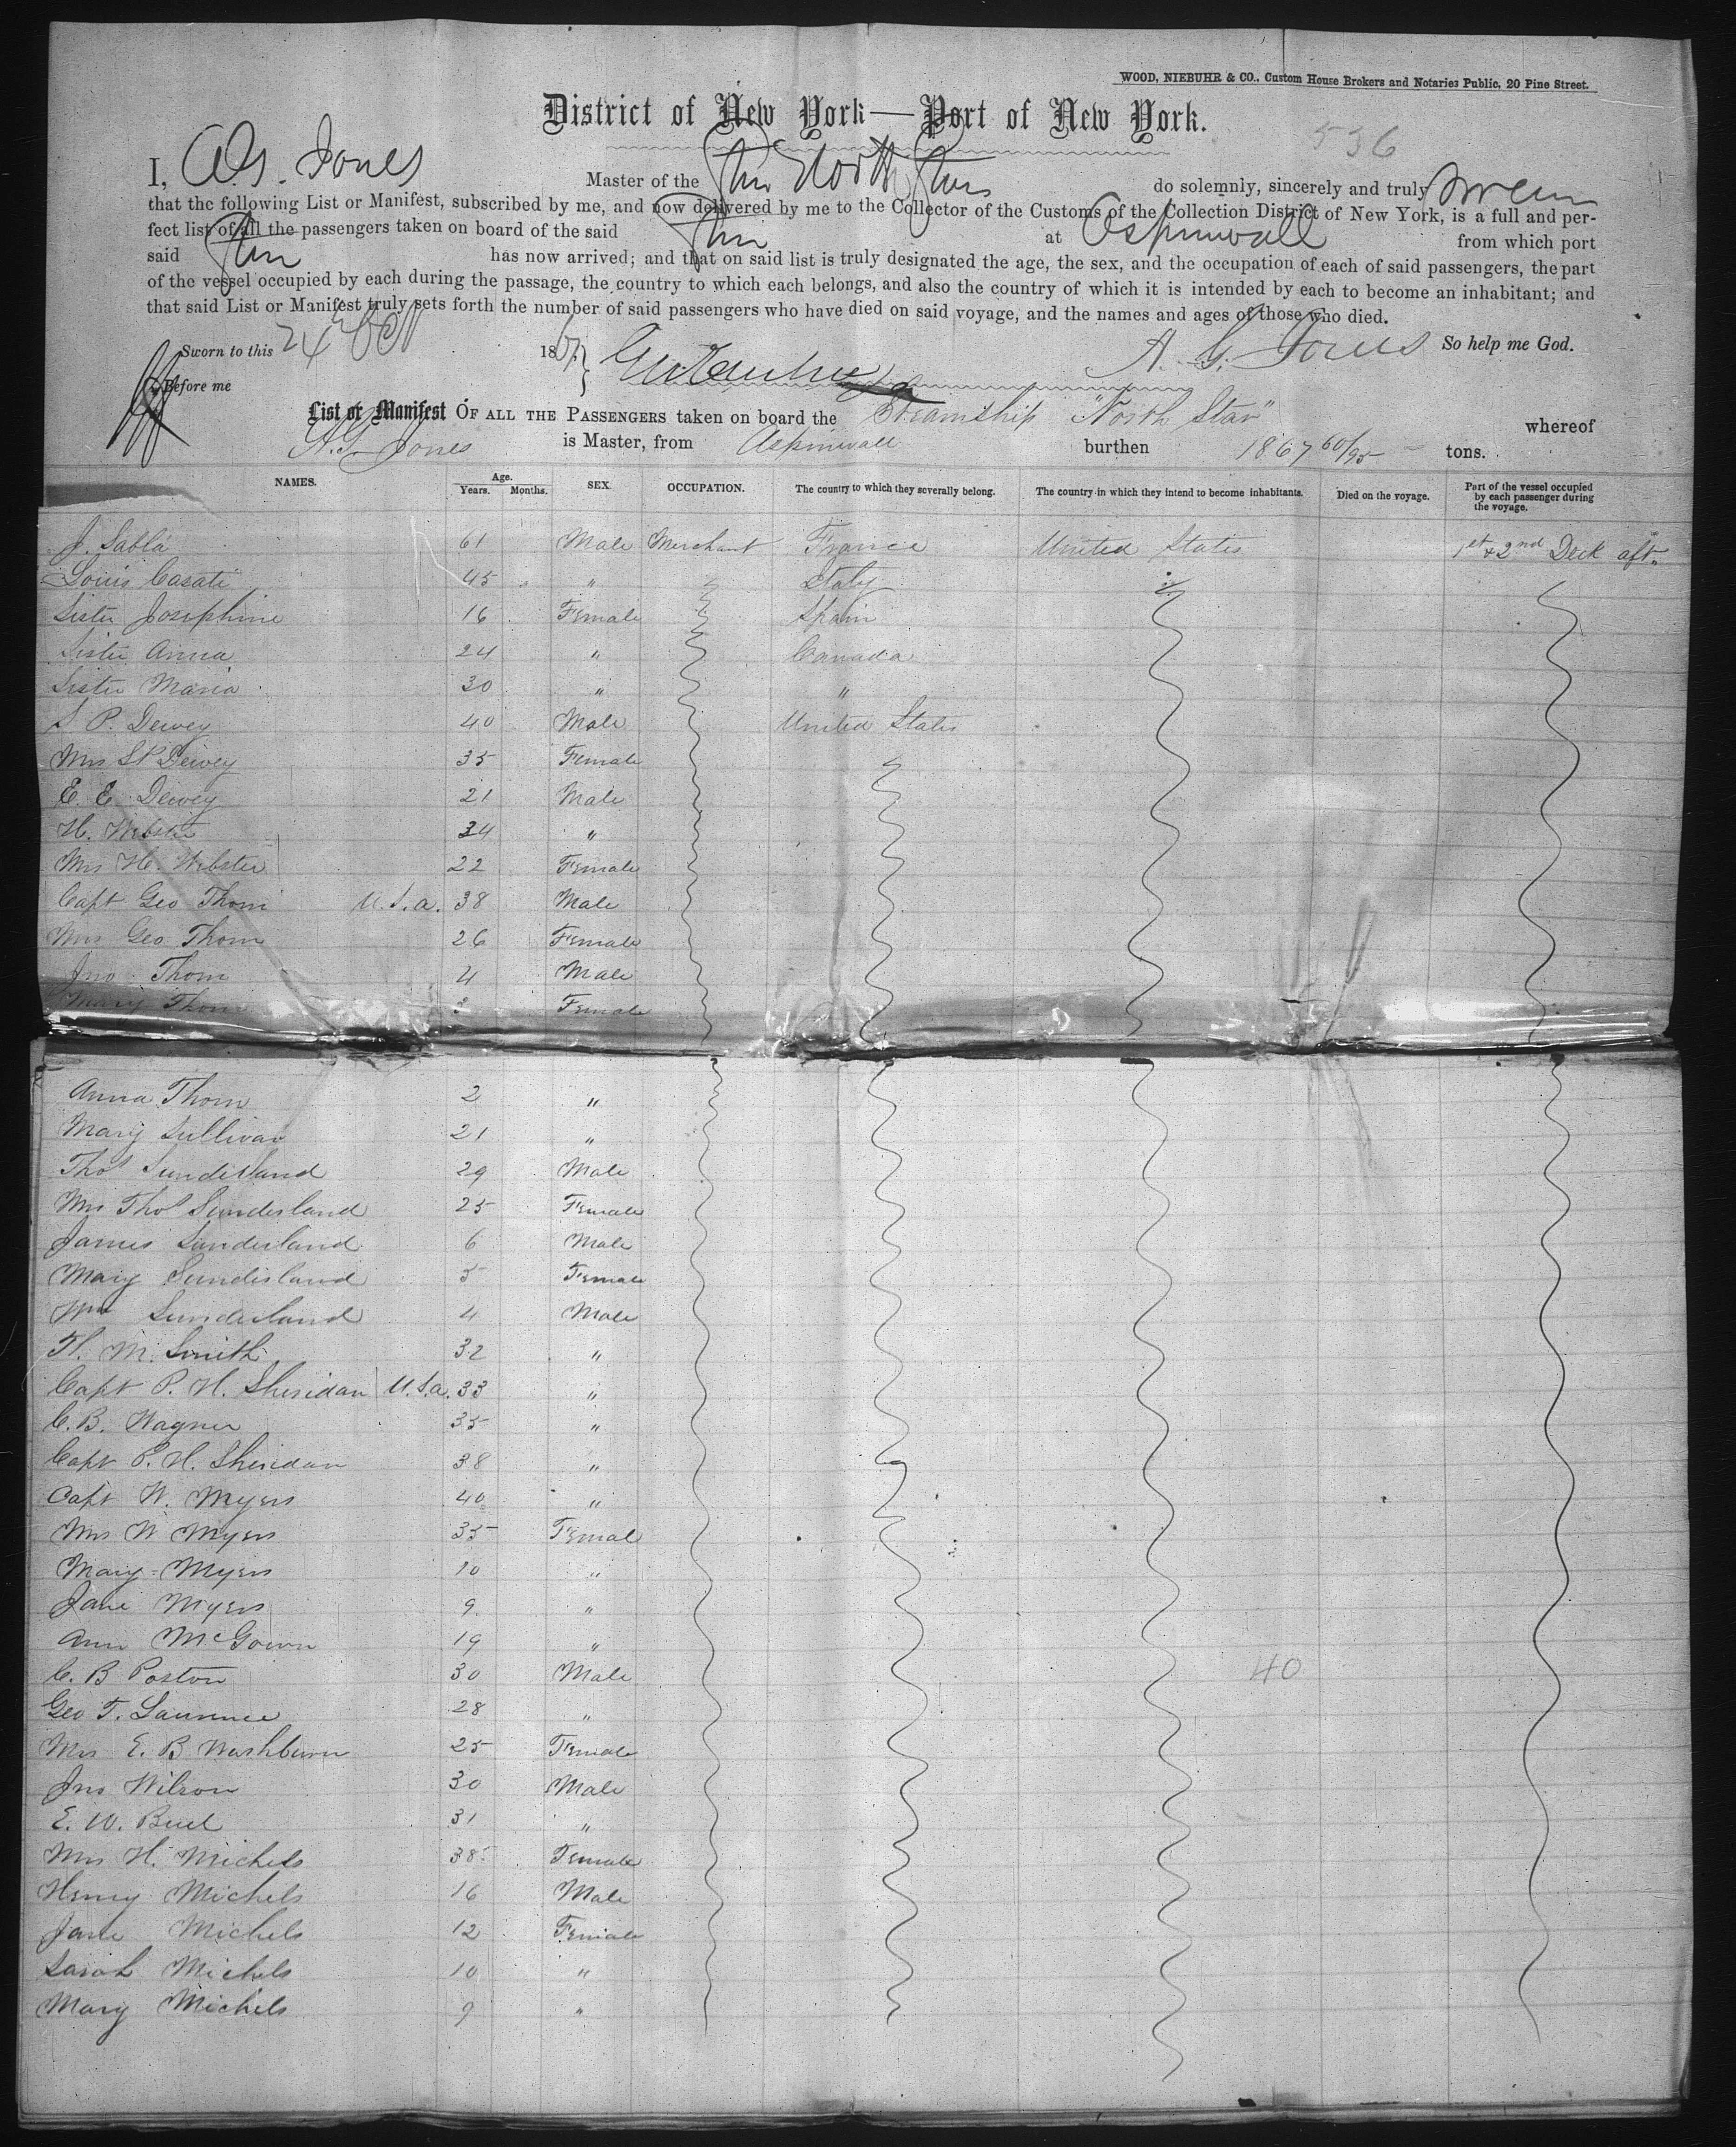 WOOD, NIEBUHR & CO., Custom House Brokers and Notaries Public, 20 Pine Street.
District of New York—Port of New York.
536
I, A. G. Jones Master of the Str North Star do solemnly, sincerely and truly swear
that the following List or Manifest, subscribed by me, and now delivered by me to the Collector of the Customs of the Collection District of New York, is a full and per-
fect list of all the passengers taken on board of the said Str at Aspinwall from which port
said Str has now arrived; and that on said list is truly designated the age, the sex, and the occupation of each of said passengers, the part
of the vessel occupied by each during the passage, the country to which each belongs, and also the country of which it is intended by each to become an inhabitant; and
that said List or Manifest truly sets forth the number of said passengers who have died on said voyage, and the names and ages of those who died.
Sworn to this 24 Oct 1861 A. G. Jones So help me God.
Before me
List or Manifest OF ALL THE PASSENGERS taken on board the Steamship "North Star" whereof
A. G. Jones is Master, from Aspinwall burthen 1867 60/95 tons.
NAMES. Age. Years. Months. SEX. OCCUPATION. The country to which they severally belong. The country in which they intend to become inhabitants. Died on the voyage. Part of the vessel occupied by each passenger during the voyage.
J. Sabla 61 Male Merchant France United States 1st & 2nd Deck aft.
Louis Casati 45 " Italy "
Sister Josephine 16 Female Spain
Sister Anna 24 " Canada
Sister Maria 30 " "
S P. Dewey 40 Male United States
Mrs S P Dewey 35 Female
E. E. Dewey 21 Male
H. Webster 34 "
Mrs H. Webster 22 Female
Capt Geo Thom U.S.A. 38 Male
Mrs Geo Thom 26 Female
Jno Thom 4 Male
Mary Thom 3 Female
Anna Thom 2 "
Mary Sullivan 21 "
Thos Sunderland 29 Male
Mrs Thos Sunderland 25 Female
James Sunderland 6 Male
Mary Sunderland 5 Female
Wm Sunderland 4 Male
H. M. Smith 32 "
Capt P. H. Sheridan U.S.A. 33 "
C. B. Wagner 35 "
Capt P. H. Sheridan 38 "
Capt W. Myers 40 "
Mrs W Myers 35 Femal
Mary Myers 10 "
Jane Myers 9. "
Ann McGown 19 "
C. B Poston 30 Male 40
Geo T. Laurence 28 "
Mrs E. B Washburn 25 Female
Jno Wilson 30 Male
E. W. Buel 31 "
Mrs H. Michels 38 Female
Henry Michels 16 Male
Jane Michels 12 Female
Sarah Michels 10 "
Mary Michels 9 "